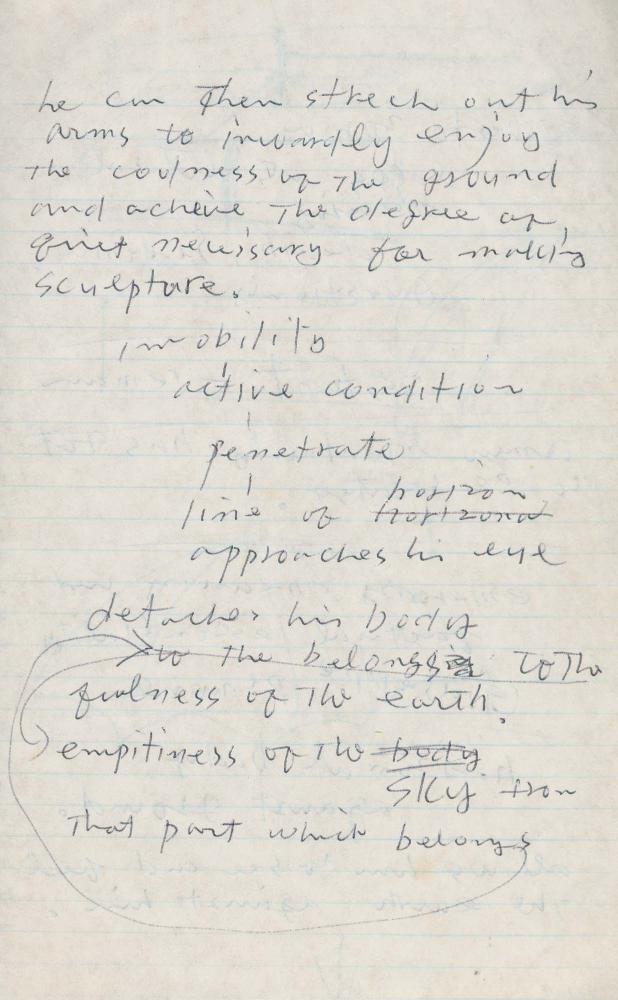 he can then strech out his
arms to inwardly enjoy
the coolness of the ground
and achieve the degree of
quiet necissary for making
sculpture.
imobility
active condition
penetrate
horizon
line of horizond
approaches his eye
detaches his body
to the belongs to the
fulness of the earth.
empitiness of the body
sky from
that part which belongs